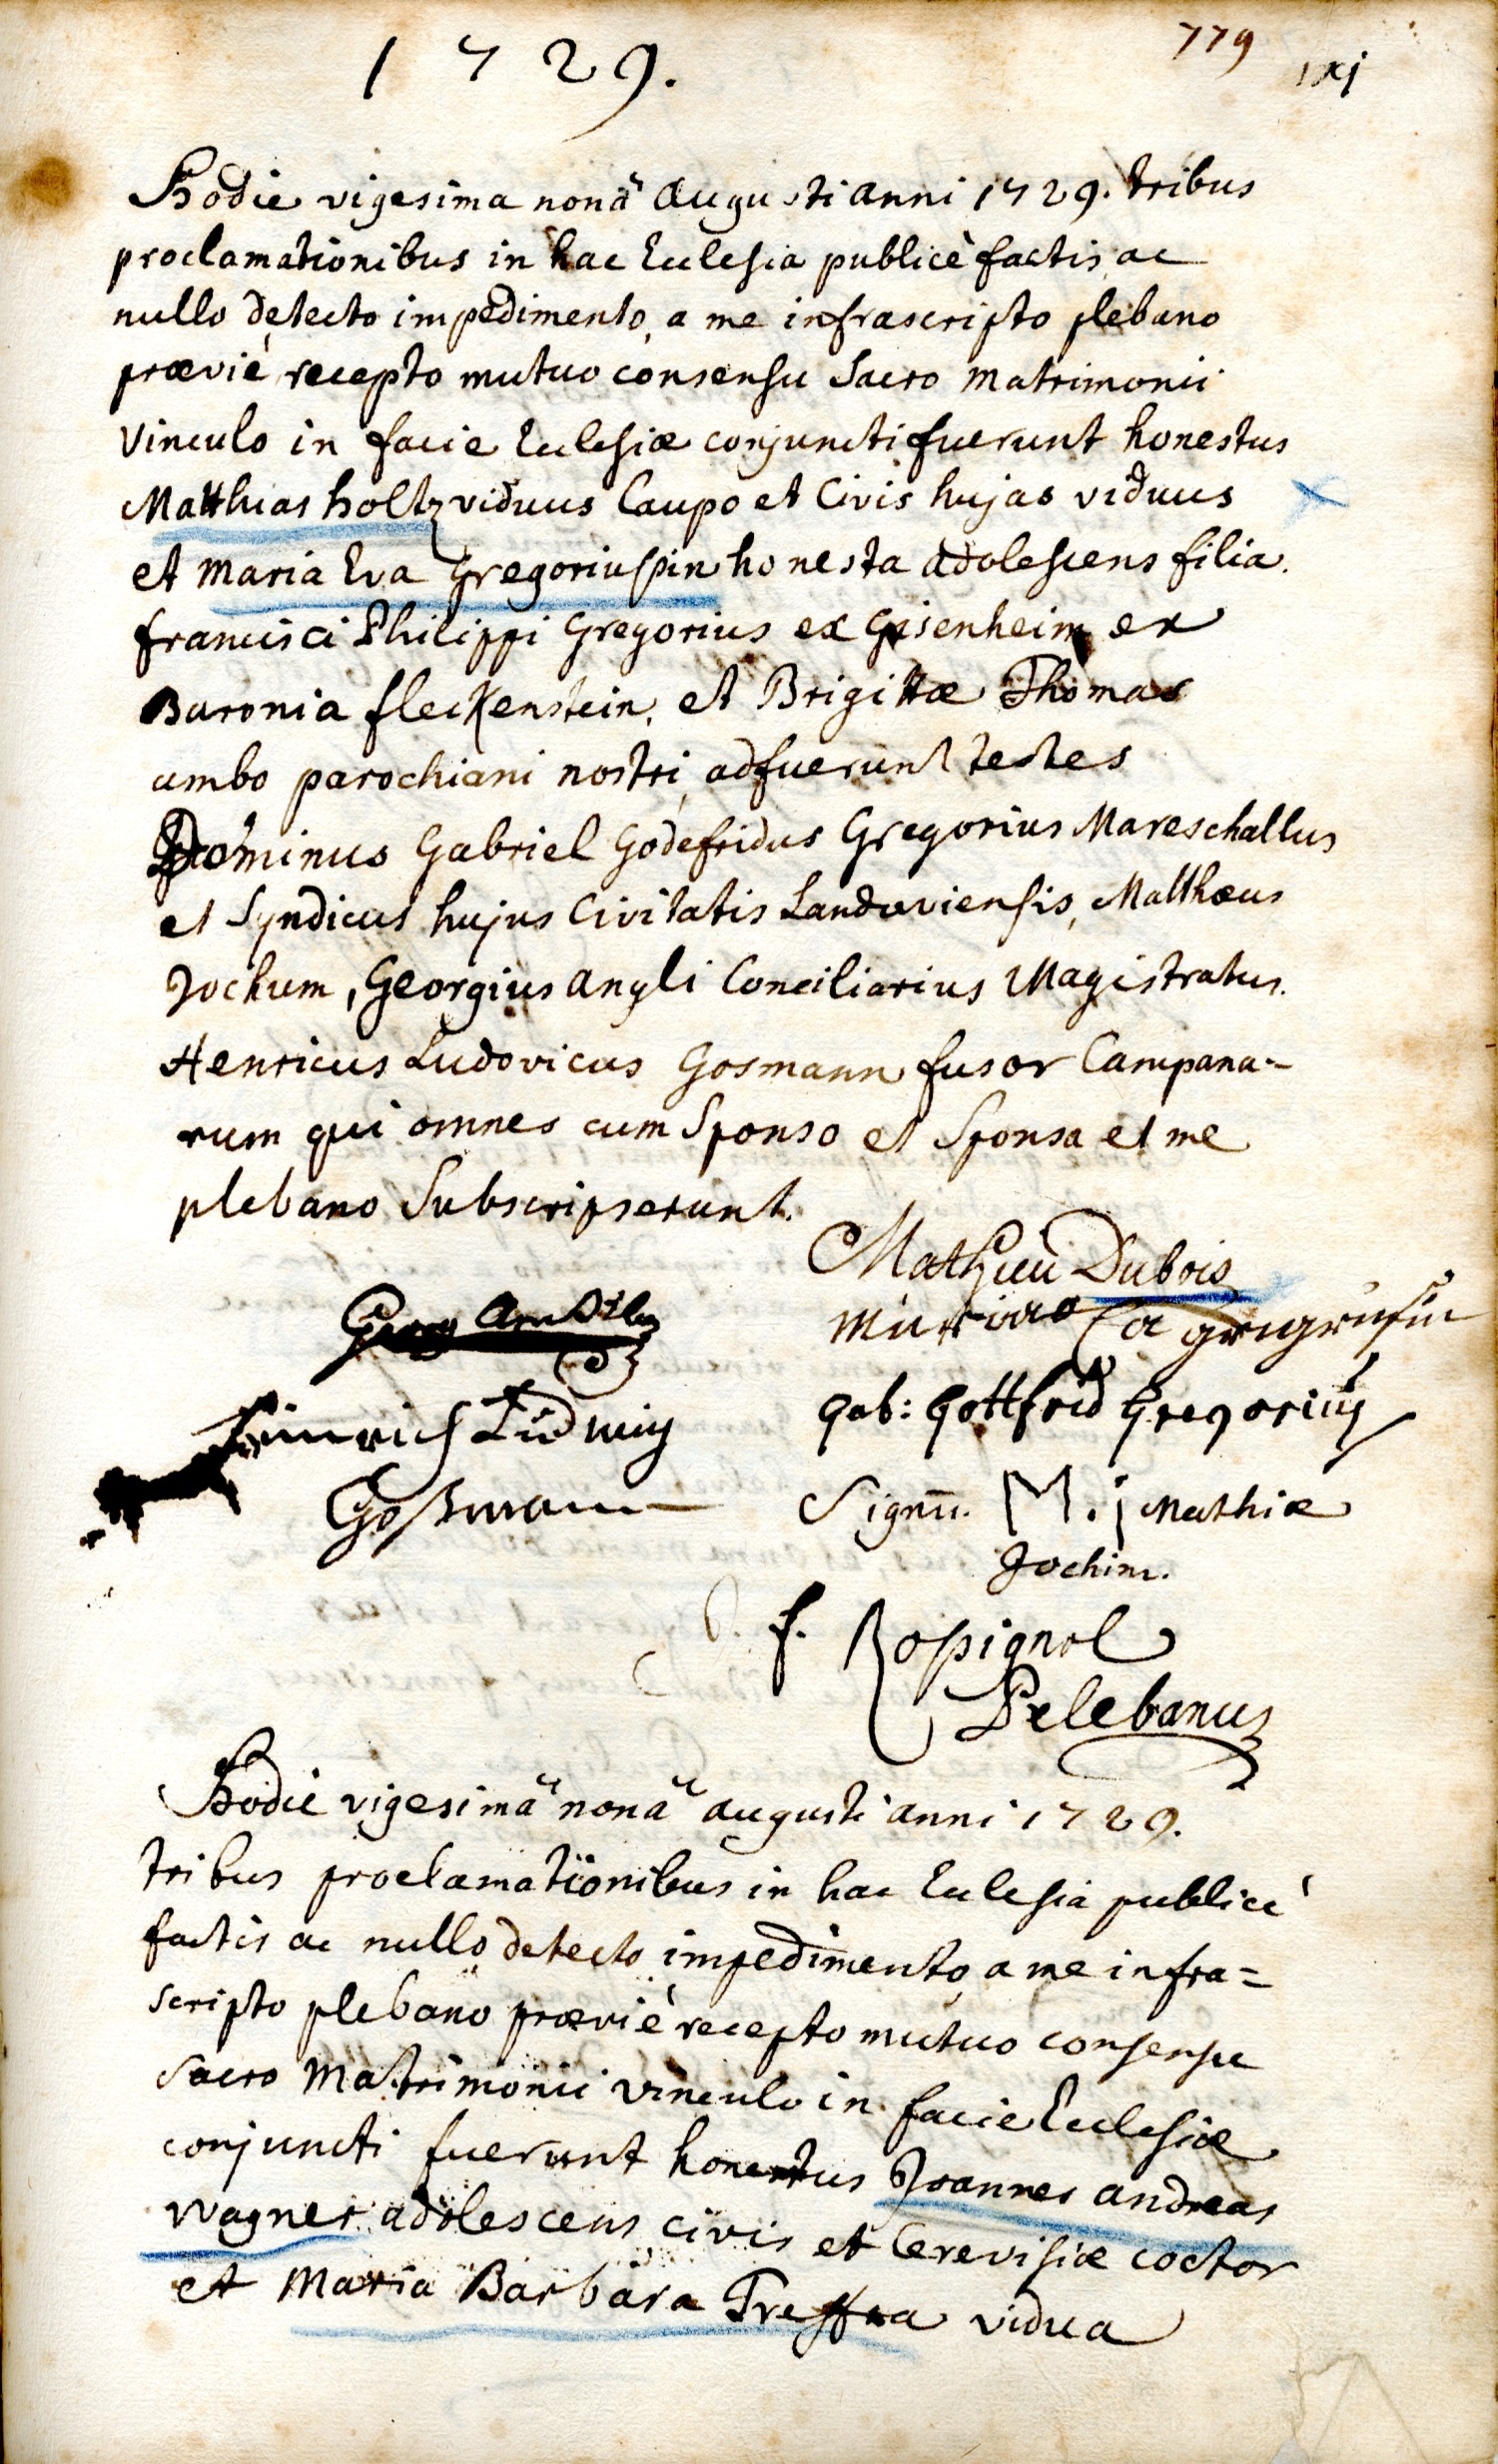 1729.
779
Hodie vigesima nonâ Augusti anni 1729. tribus
proclamationibus in hac Ecclesia publicè factis, ac
nullo detecto impedimento, a me infrascripto plebano
prævie, recepto mutuo consensu Sacro Matrimonii
Vinculo in facie Ecclesiæ conjuncti fuerunt honestus
Matthias holtz viduus Caupo et Civis hujas viduus
et Maria Eva Gregoriussin honesta adolescens filia
francisci Philippi Gregorius ex Gisenheim ex
Baronia fleckenstein, et Brigittæ Thomas
ambo parochiani nostri, adfuerunt testes
Dominus Gabriel Godefridus Gregorius Mareschallus
et Syndicus hujus Civitatis Landaviensis, Matthæus
Jochum, Georgius Angli Conciliarius Magistratus.
Henricus Ludovicus Gosmann fusor Campana=
rum qui omnes cum Sponso et Sponsa et me
plebano Subscripserunt.
Mathieu Dubois
Georg
Heinrich Ludwig
gab: gottfrid Gregorius
Goßmann
Signū. M. j Mathiæ
Jochim.
f. Rossignol
Pelebanus
Hodie vigesimâ nonâ augusti anni 1729.
tribus proclamationibus in hac Ecclesia publicè
factis ac nullo detecto impedimento, a me infra=
scripto plebano præviè recepto mutuo consensu
Sacro Matrimonii vinculo in facie Ecclesiæ
conjuncti fuerunt honestus Joannes andreas
Wagner adolescens civis et Cerevisiæ coctor
et Maria Barbara vidua